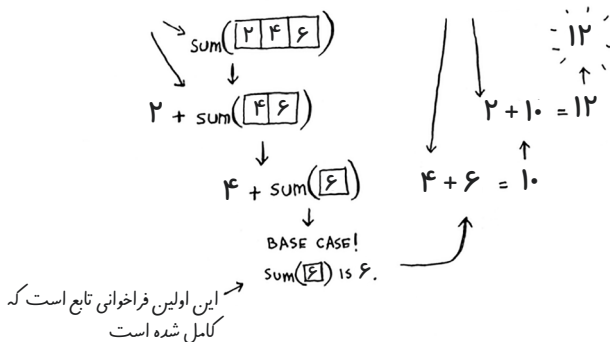 sum(۲ ۴ ۶)
۲ + sum(۴ ۶)
۴ + sum(۶)
BASE CASE!
sum(۶) IS ۶.
این اولین فراخوانی تابع است که
کامل شده است
۴ + ۶ = ۱۰
۲ + ۱۰ = ۱۲
۱۲